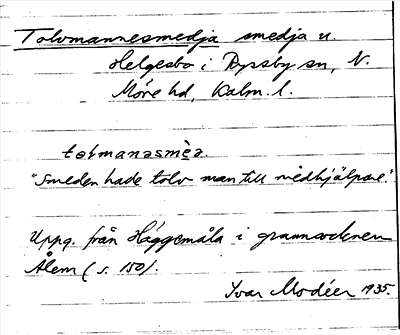 Tolvmannesmedja smedja u.
Helgesbo i Ryssby sn, N.
Möre hd, Kalm. l.
tolmanasmèa.
"Smeden hade tolv man till medhjälpare".
Uppg. från Häggemåla i grannsocknen
Ålem (s. 150).
Ivar Modéer 1935.